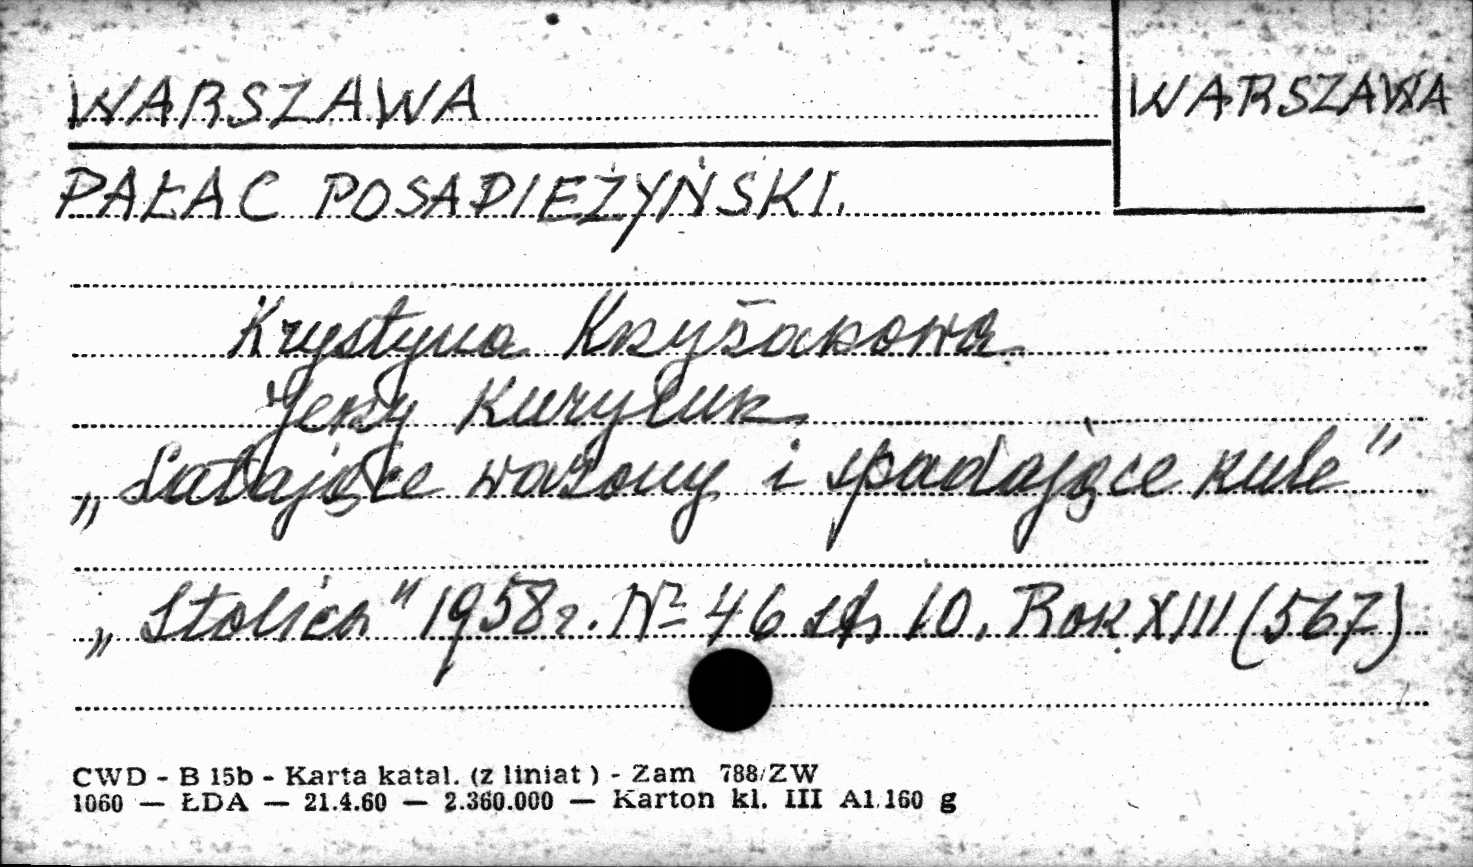 WARSZAWA
WARSZAWA
PAŁAC POSAPIEŻYŃSKI.
Krystyna Krzyżakowa
Jerzy Kuryluk
„Latające wazony i spadające kule”
„Stolica” 1958 r. Nº 46 str 10. Rok XIII (567)
CWD - B 15b - Karta katal. (z liniat) - Zam 788/ZW
1060 — ŁDA — 21.4.60 — 2.360.000 — Karton kl. III A1 160 g